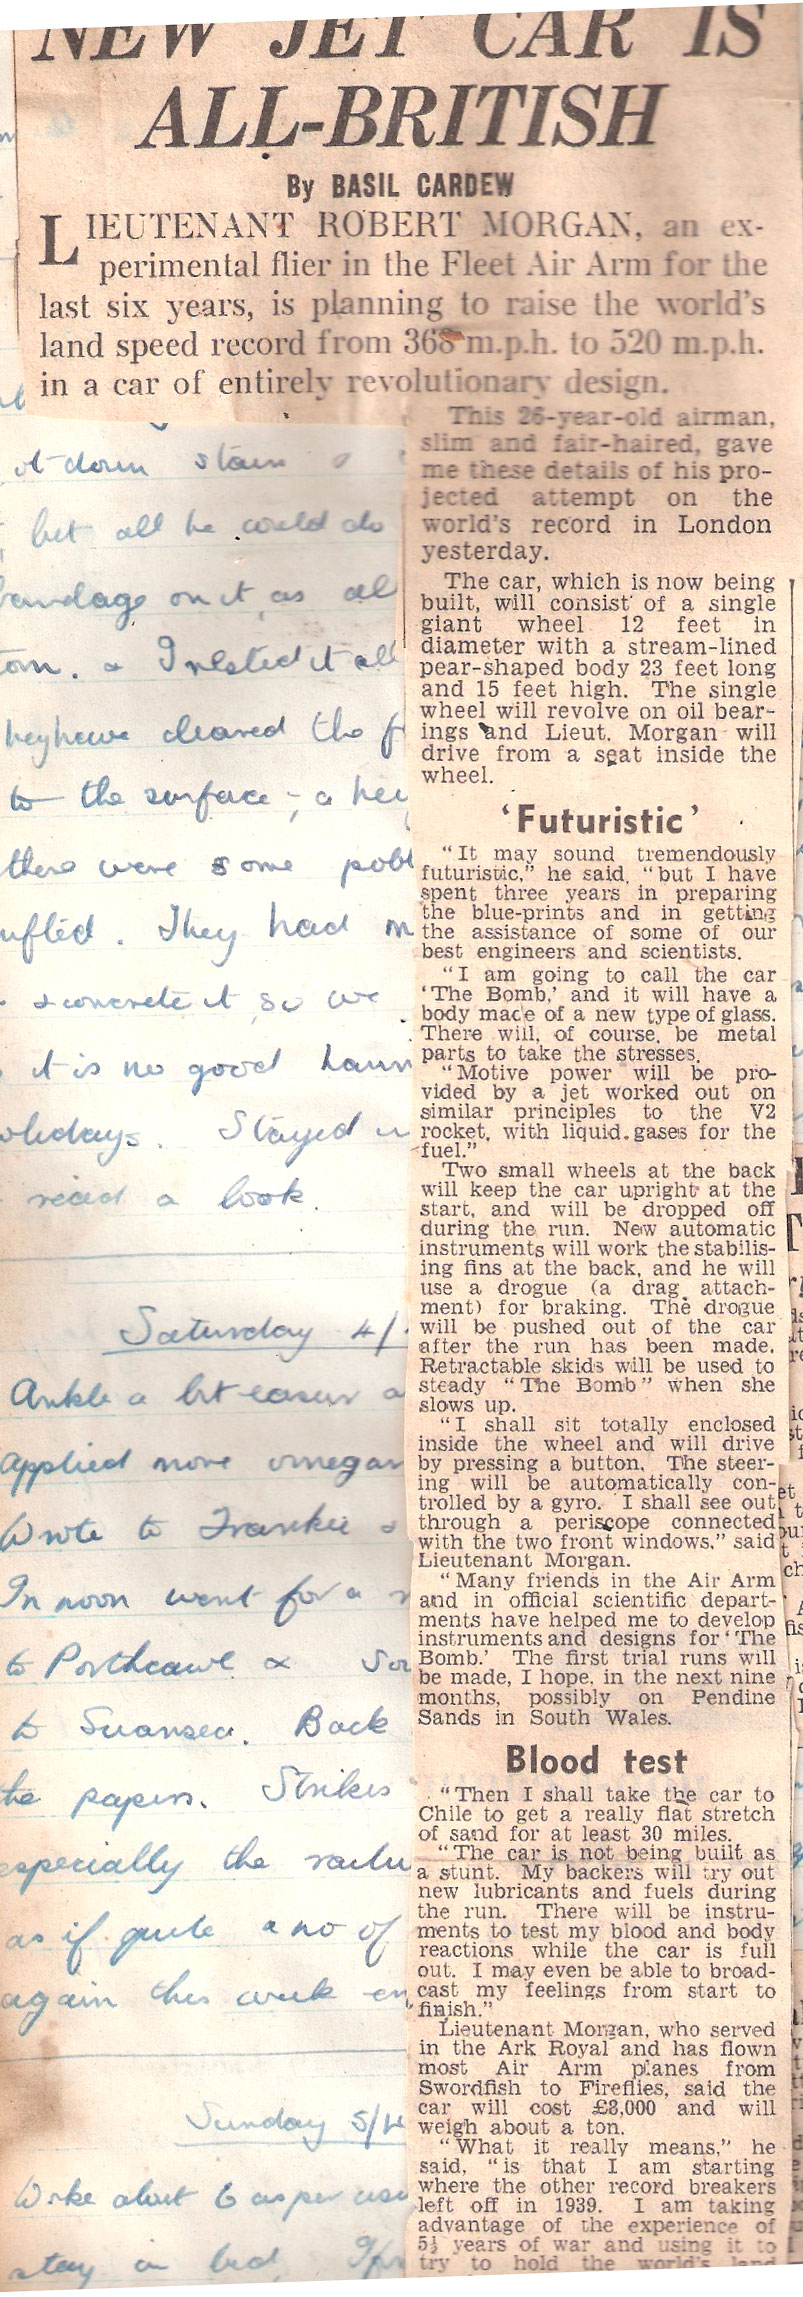 NEW JET CAR IS
ALL-BRITISH
By BASIL CARDEW
LIEUTENANT ROBERT MORGAN, an ex-
perimental flier in the Fleet Air Arm for the
last six years, is planning to raise the world's
land speed record from 368 m.p.h. to 520 m.p.h.
in a car of entirely revolutionary design.
This 26-year-old airman,
slim and fair-haired, gave
me these details of his pro-
jected attempt on the
world's record in London
yesterday.
The car, which is now being
built, will consist of a single
giant wheel 12 feet in
diameter with a stream-lined
pear-shaped body 23 feet long
and 15 feet high. The single
wheel will revolve on oil bear-
ings and Lieut. Morgan will
drive from a seat inside the
wheel.
'Futuristic'
"It may sound tremendously
futuristic," he said, "but I have
spent three years in preparing
the blue-prints and in getting
the assistance of some of our
best engineers and scientists.
"I am going to call the car
'The Bomb,' and it will have a
body made of a new type of glass.
There will, of course, be metal
parts to take the stresses.
"Motive power will be pro-
vided by a jet worked out on
similar principles to the V2
rocket, with liquid gases for the
fuel."
Two small wheels at the back
will keep the car upright at the
start, and will be dropped off
during the run. New automatic
instruments will work the stabilis-
ing fins at the back, and he will
use a drogue (a drag attach-
ment) for braking. The drogue
will be pushed out of the car
after the run has been made.
Retractable skids will be used to
steady "The Bomb" when she
slows up.
"I shall sit totally enclosed
inside the wheel and will drive
by pressing a button. The steer-
ing will be automatically con-
trolled by a gyro. I shall see out
through a periscope connected
with the two front windows," said
Lieutenant Morgan.
"Many friends in the Air Arm
and in official scientific depart-
ments have helped me to develop
instruments and designs for 'The
Bomb.' The first trial runs will
be made, I hope, in the next nine
months, possibly on Pendine
Sands in South Wales.
Blood test
"Then I shall take the car to
Chile to get a really flat stretch
of sand for at least 30 miles.
"The car is not being built as
a stunt. My backers will try out
new lubricants and fuels during
the run. There will be instru-
ments to test my blood and body
reactions while the car is full
out. I may even be able to broad-
cast my feelings from start to
finish."
Lieutenant Morgan, who served
in the Ark Royal and has flown
most Air Arm planes from
Swordfish to Fireflies, said the
car will cost £8,000 and will
weigh about a ton.
"What it really means," he
said, "is that I am starting
where the other record breakers
left off in 1939. I am taking
advantage of the experience of
5½ years of war and using it to
try to hold the world's land
it down stairs
but all he could do
bandage on it, as all
torn. & I rested it all
cleared the
to the surface - a
there were some
They had
& concrete it, so we
it is no good
Stayed
read a book.
Saturday 4/
Ankle a bit easier
Applied more vinegar
Wrote to Frankie &
In noon went for a
to Porthcawl &
to Swansea. Back
the papers. Strikes
especially the
as if quite a no of
again this week
Sunday 5/4
Woke about 6 as per
stay in bed.